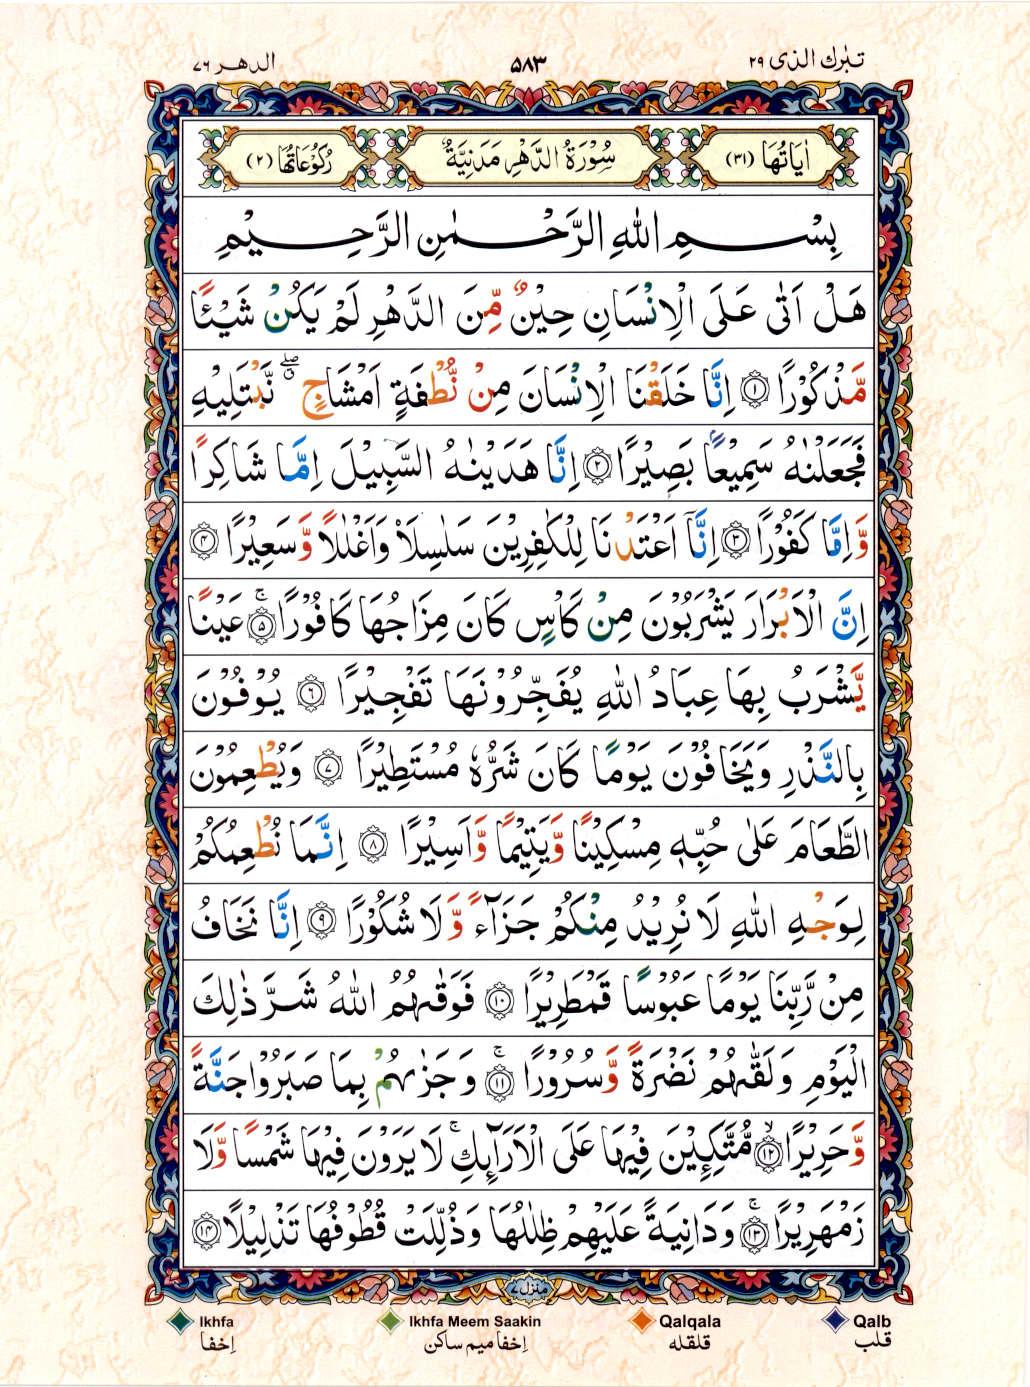 تبٰرك الذی ٢٩
٥٨٣
الدهر ٧٦
اٰیَاتُهَا (٣١)
سُوْرَةُ الدَّهْرِ مَدَنِيَّةٌ
رُكُوْعَاتُهَا (٢)
بِسْمِ اللهِ الرَّحْمٰنِ الرَّحِيْمِ
هَلْ اَتٰى عَلَى الْاِنْسَانِ حِيْنٌ مِّنَ الدَّهْرِ لَمْ يَكُنْ شَيْـًٔا
مَّذْكُوْرًا ﴿١﴾ اِنَّا خَلَقْنَا الْاِنْسَانَ مِنْ نُّطْفَةٍ اَمْشَاجٍ ۖ نَّبْتَلِيْهِ
فَجَعَلْنٰهُ سَمِيْعًۢا بَصِيْرًا ﴿٢﴾ اِنَّا هَدَيْنٰهُ السَّبِيْلَ اِمَّا شَاكِرًا
وَّاِمَّا كَفُوْرًا ﴿٣﴾ اِنَّآ اَعْتَدْنَا لِلْكٰفِرِيْنَ سَلٰسِلَا۟ وَاَغْلٰلًا وَّسَعِيْرًا ﴿٤﴾
اِنَّ الْاَبْرَارَ يَشْرَبُوْنَ مِنْ كَاْسٍ كَانَ مِزَاجُهَا كَافُوْرًا ﴿٥﴾ۚ عَيْنًا
يَّشْرَبُ بِهَا عِبَادُ اللهِ يُفَجِّرُوْنَهَا تَفْجِيْرًا ﴿٦﴾ يُوْفُوْنَ
بِالنَّذْرِ وَيَخَافُوْنَ يَوْمًا كَانَ شَرُّهٗ مُسْتَطِيْرًا ﴿٧﴾ وَيُطْعِمُوْنَ
الطَّعَامَ عَلٰى حُبِّهٖ مِسْكِيْنًا وَّيَتِيْمًا وَّاَسِيْرًا ﴿٨﴾ اِنَّمَا نُطْعِمُكُمْ
لِوَجْهِ اللهِ لَا نُرِيْدُ مِنْكُمْ جَزَآءً وَّلَا شُكُوْرًا ﴿٩﴾ اِنَّا نَخَافُ
مِنْ رَّبِّنَا يَوْمًا عَبُوْسًا قَمْطَرِيْرًا ﴿١٠﴾ فَوَقٰىهُمُ اللهُ شَرَّ ذٰلِكَ
الْيَوْمِ وَلَقّٰىهُمْ نَضْرَةً وَّسُرُوْرًا ﴿١١﴾ۚ وَجَزٰىهُمْ بِمَا صَبَرُوْا جَنَّةً
وَّحَرِيْرًا ﴿١٢﴾ۙ مُّتَّكِـِٕيْنَ فِيْهَا عَلَى الْاَرَآئِكِ ۚ لَا يَرَوْنَ فِيْهَا شَمْسًا وَّلَا
زَمْهَرِيْرًا ﴿١٣﴾ۚ وَدَانِيَةً عَلَيْهِمْ ظِلٰلُهَا وَذُلِّلَتْ قُطُوْفُهَا تَذْلِيْلًا ﴿١٤﴾
منزل ٧
Ikhfa
Ikhfa Meem Saakin
Qalqala
Qalb
اِخفا
اِخفا میم ساکن
قلقله
قلب